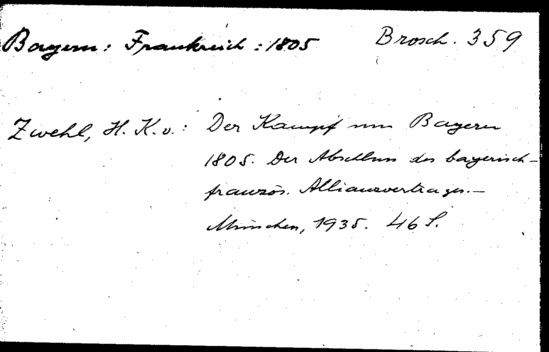 Bayern: Frankreich: 1805 Brosch. 359
Zwehl, H. K. v.: Der Kampf um Bayern
1805. Der Abschluss des bayerisch-
französ. Allianzvertrages.—
München, 1935. 46 S.